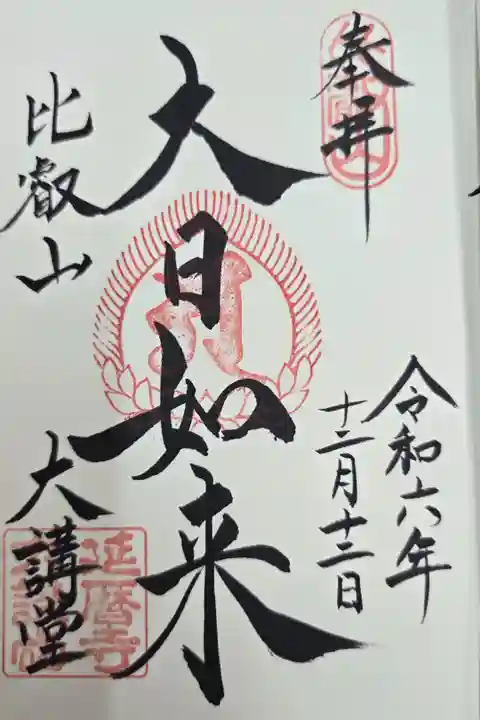 奉拝
令和六年
十二月十二日
大日如来
比叡山
大講堂
延暦寺